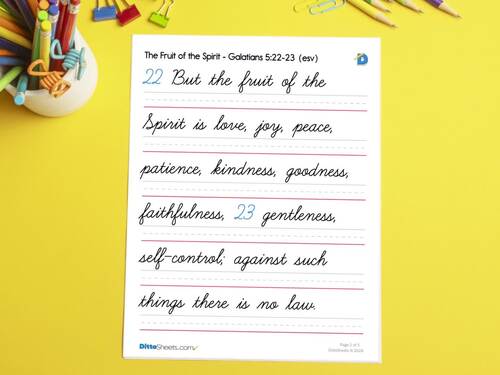 The Fruit of the Spirit - Galatians 5:22-23 (esv)
22 But the fruit of the
Spirit is love, joy, peace,
patience, kindness, goodness,
faithfulness, 23 gentleness,
self-control; against such
things there is no law.
DittoSheets.com
Page 2 of 5